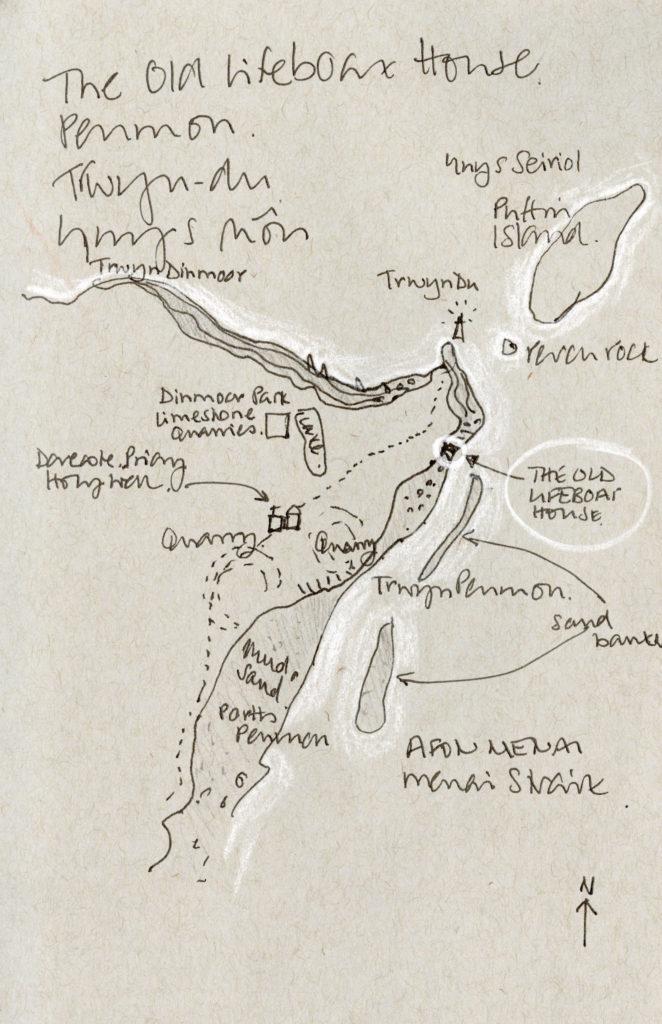 The Old Lifeboat House.
Penmon.
Trwyn-du
Ynys Môn
Trwyn Dinmoor
Ynys Seiriol
Puffin
Island.
Trwyn Du
Perch rock
Dinmoor Park
Limestone
Quarries.
Lake
Dovecote. Priory
Holy Well.
THE OLD
LIFEBOAT
HOUSE.
Quarry
Quarry
Trwyn Penmon.
sand
banks
Mud.
Sand
Porth
Penmon
AFON MENAI
Menai Strait.
N